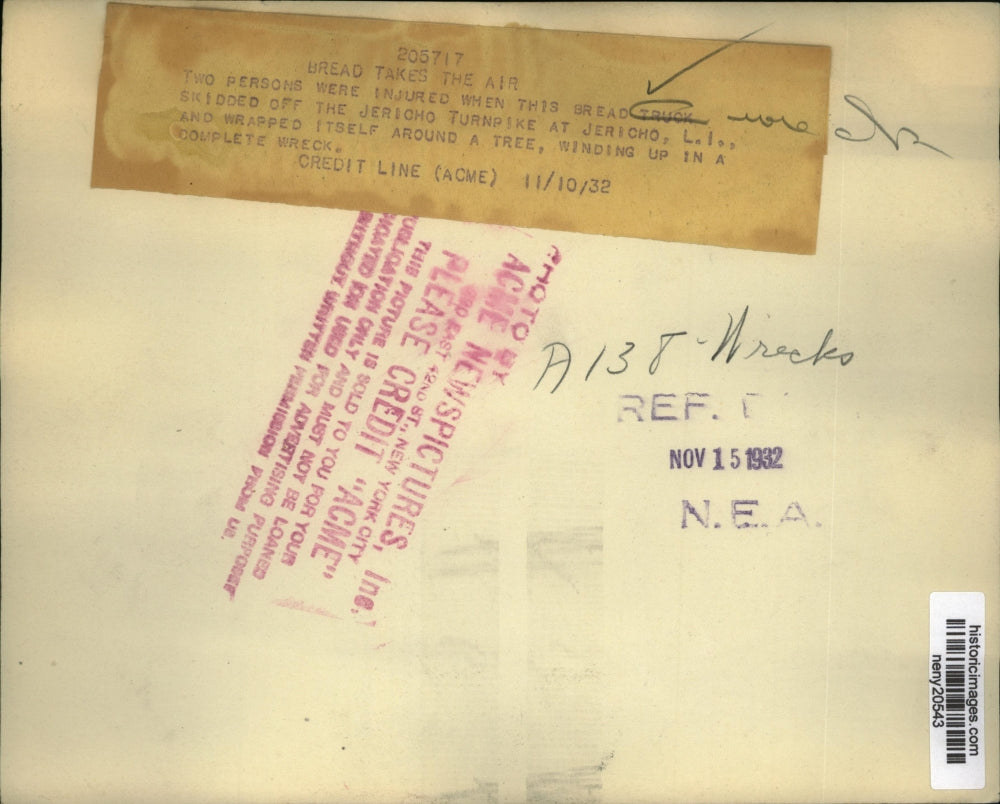 205717
BREAD TAKES THE AIR
TWO PERSONS WERE INJURED WHEN THIS BREAD TRUCK
SKIDDED OFF THE JERICHO TURNPIKE AT JERICHO, L.I.,
AND WRAPPED ITSELF AROUND A TREE, WINDING UP IN A
COMPLETE WRECK.
CREDIT LINE (ACME) 11/10/32
PHOTO BY
ACME NEWSPICTURES, Inc.
EAST 42ND ST., NEW YORK CITY
PLEASE CREDIT "ACME"
THIS PICTURE IS SOLD TO YOU FOR YOUR
PUBLICATION ONLY AND MUST NOT BE LOANED
OR USED FOR ADVERTISING PURPOSES
WRITTEN PERMISSION FROM US.
A138-Wrecks
REF.
NOV 15 1932
N.E.A.
historicimages.com
neny20543